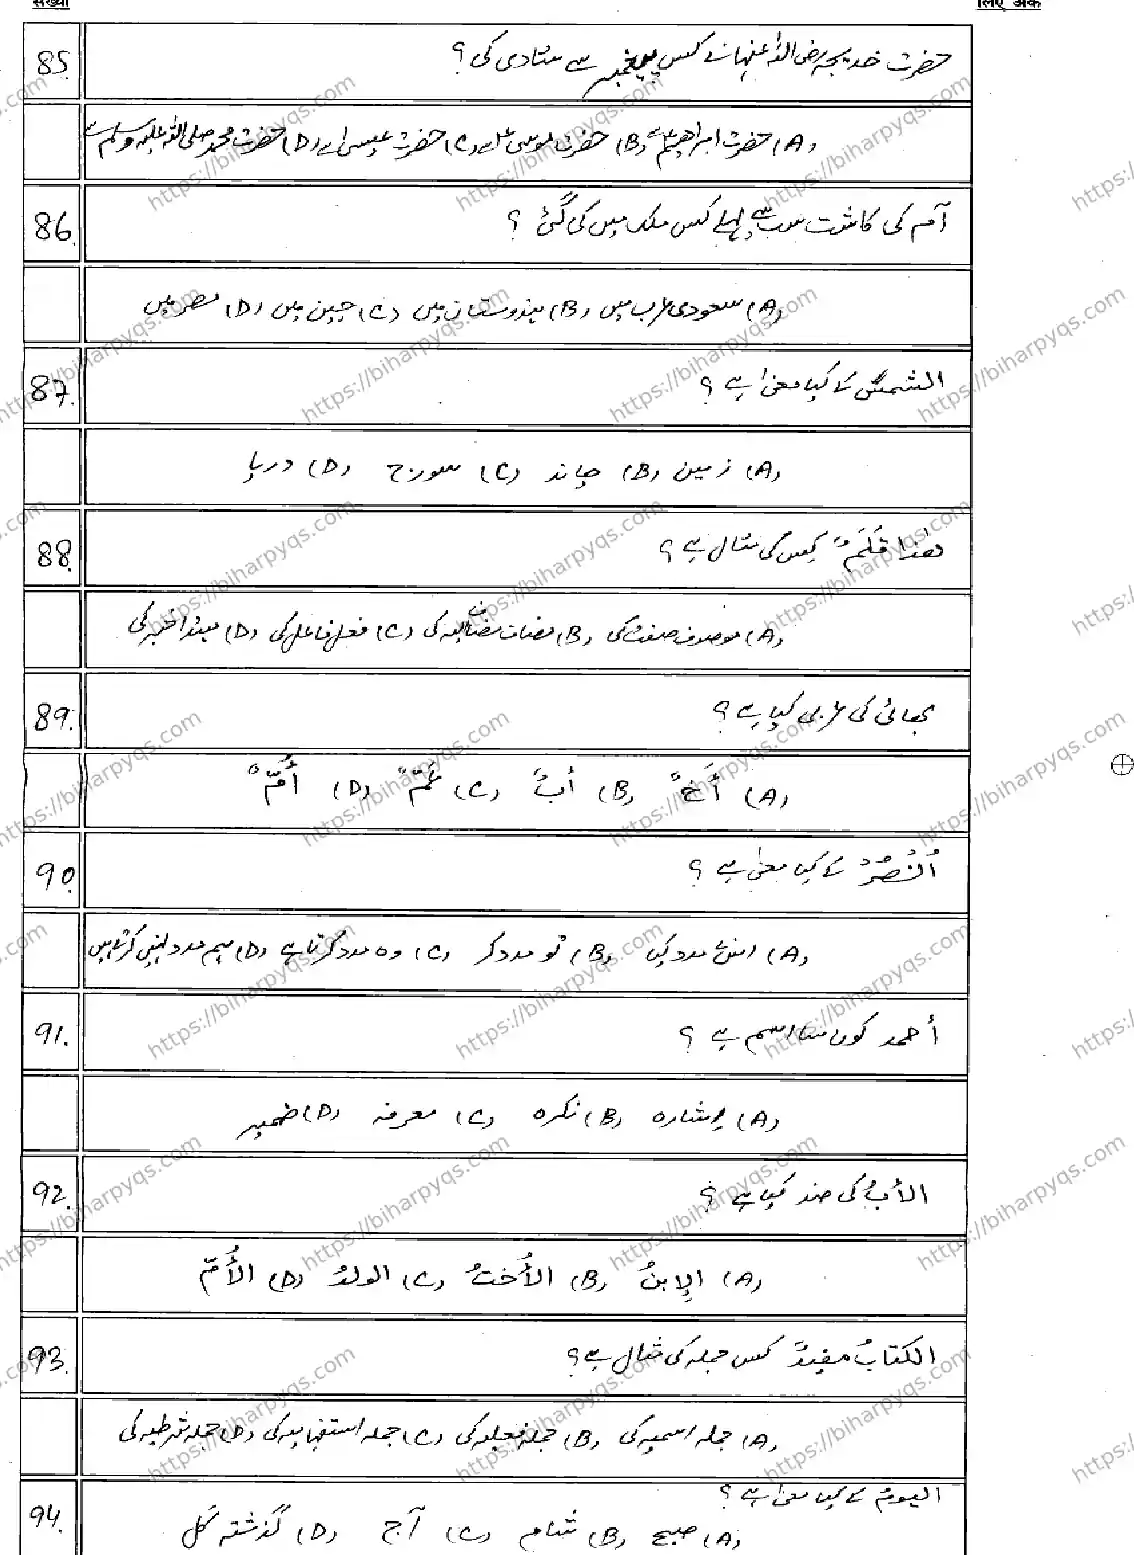 संख्या
लिए अंक
85. حضرت خدیجہ رضی اللہ عنہا نے کس پیغمبر سے شادی کی؟
(A) حضرت ابراہیمؑ (B) حضرت موسیٰ (C) حضرت عیسیٰ (D) حضرت محمد صلی اللہ علیہ وسلم سے
86. آم کی کاشت سب سے پہلے کس ملک میں کی گئی؟
(A) سعودی عرب میں (B) ہندوستان میں (C) چین میں (D) مصر میں
87. الشمس کے کیا معنیٰ ہے؟
(A) زمین (B) چاند (C) سورج (D) دریا
88. ھٰذا قَلَمٌ کس کی مثال ہے؟
(A) موصوف صفت کی (B) مضاف مضاف الیہ کی (C) فعل فاعل کی (D) مبتدا خبر کی
89. بھائی کی عربی کیا ہے؟
(A) أَخٌ (B) أبٌ (C) عَمٌّ (D) أُمٌّ
90. اُنْصُرْ کے کیا معنیٰ ہے؟
(A) اس نے مدد کی (B) تو مدد کر (C) وہ مدد کرتا ہے (D) ہم مدد نہیں کرتے ہیں
91. أحمد کون سا اسم ہے؟
(A) اشارہ (B) نکرہ (C) معرفہ (D) ضمیر
92. الأبُ کی ضد کیا ہے؟
(A) الإبنُ (B) الأُختُ (C) الولدُ (D) الأُمّ
93. الکتابُ مفیدٌ کس جملہ کی مثال ہے؟
(A) جملہ اسمیہ کی (B) جملہ فعلیہ کی (C) جملہ استفہامیہ کی (D) جملہ شرطیہ کی
94. الیومُ کے کیا معنیٰ ہے؟
(A) صبح (B) شام (C) آج (D) گذشتہ کل
https://biharpyqs.com